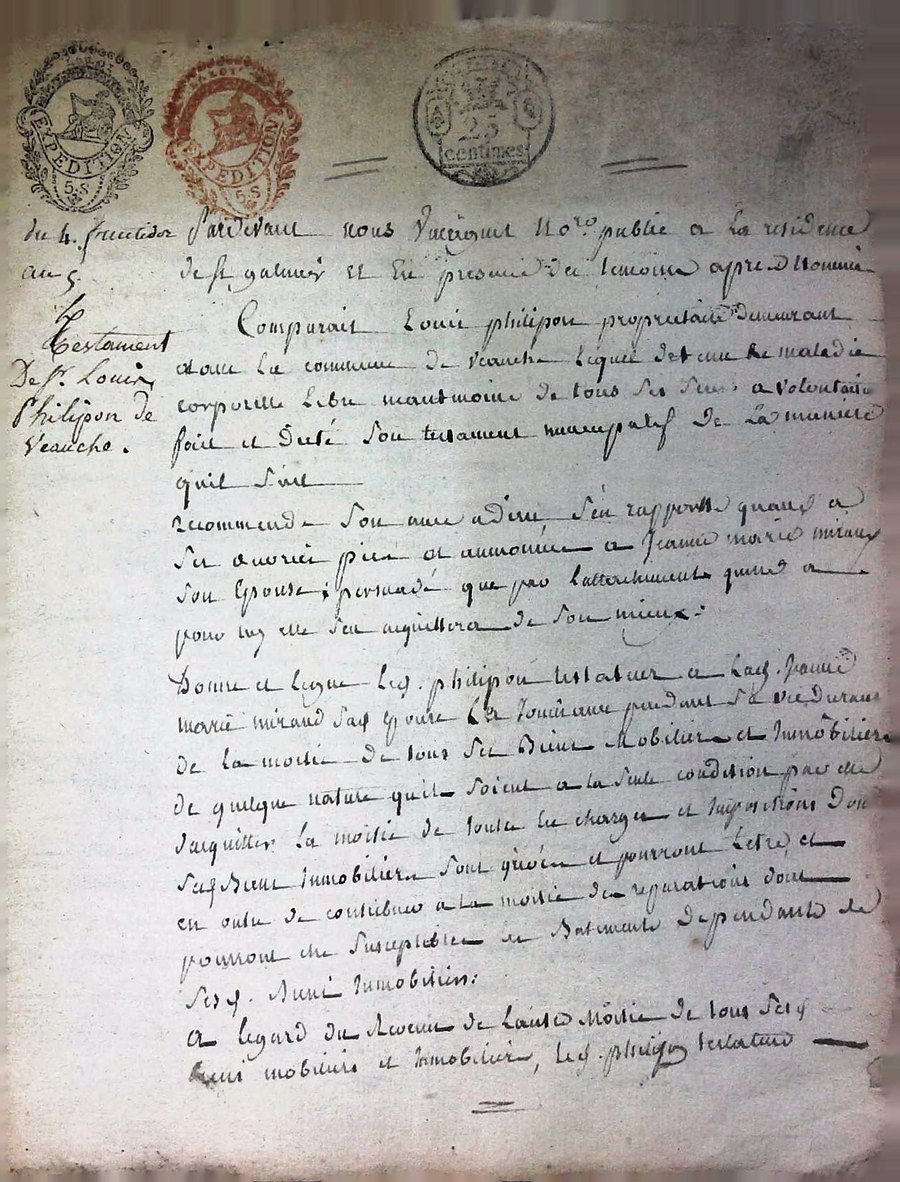 LA LOI
EXPEDITION
5.S
LA LOI
EXPEDITION
5.S
25
centimes
du 4. fructidor
an 5
Testament
De Sr. Louis
Philipon de
Veauche.
Pardevant nous No.re public a La residence
de St galmier et En presence des temoins apres Nommés
Comparait Louis philipon proprietaire demeurant
dans La commune de veauche Lequel detenu de maladie
corporelle Libre neantmoins de tous ses sens a volontairt
fait et dicté Son testament nuncupatif de La maniere
quil suit
recommende Son ame adieu, S'en rapporte quant a
Ses œuvres pies et aumones a Jeanne marie mirand
Son Epouse, persuadé que par l'attachement quelle a
pour luy elle s'en acquittera de Son mieux:
Donne et Legue Led. philipon testateur a Lad. Jeanne
marie mirand Sad. Epouse La Jouissance pendant Sa vie durant
de La moitié de tous Ses Biens Mobiliers et Immobiliers
de quelque nature quils soient a la seule condition par elle
d'acquitter La moitié de toutes les charges et Impositions Dont
Sesd. Biens Immobiliers Sont grévés et pourront Letre et
en outre de contribuer a La moitié des reparations dont
pourront etre Susceptibles les Batiments dependants de
Sesd. Biens Immobiliers:
a Legard du Revenu de Lautre Moitié de tous Sesd.
biens mobiliers et Immobiliers, Led. philipon testateur